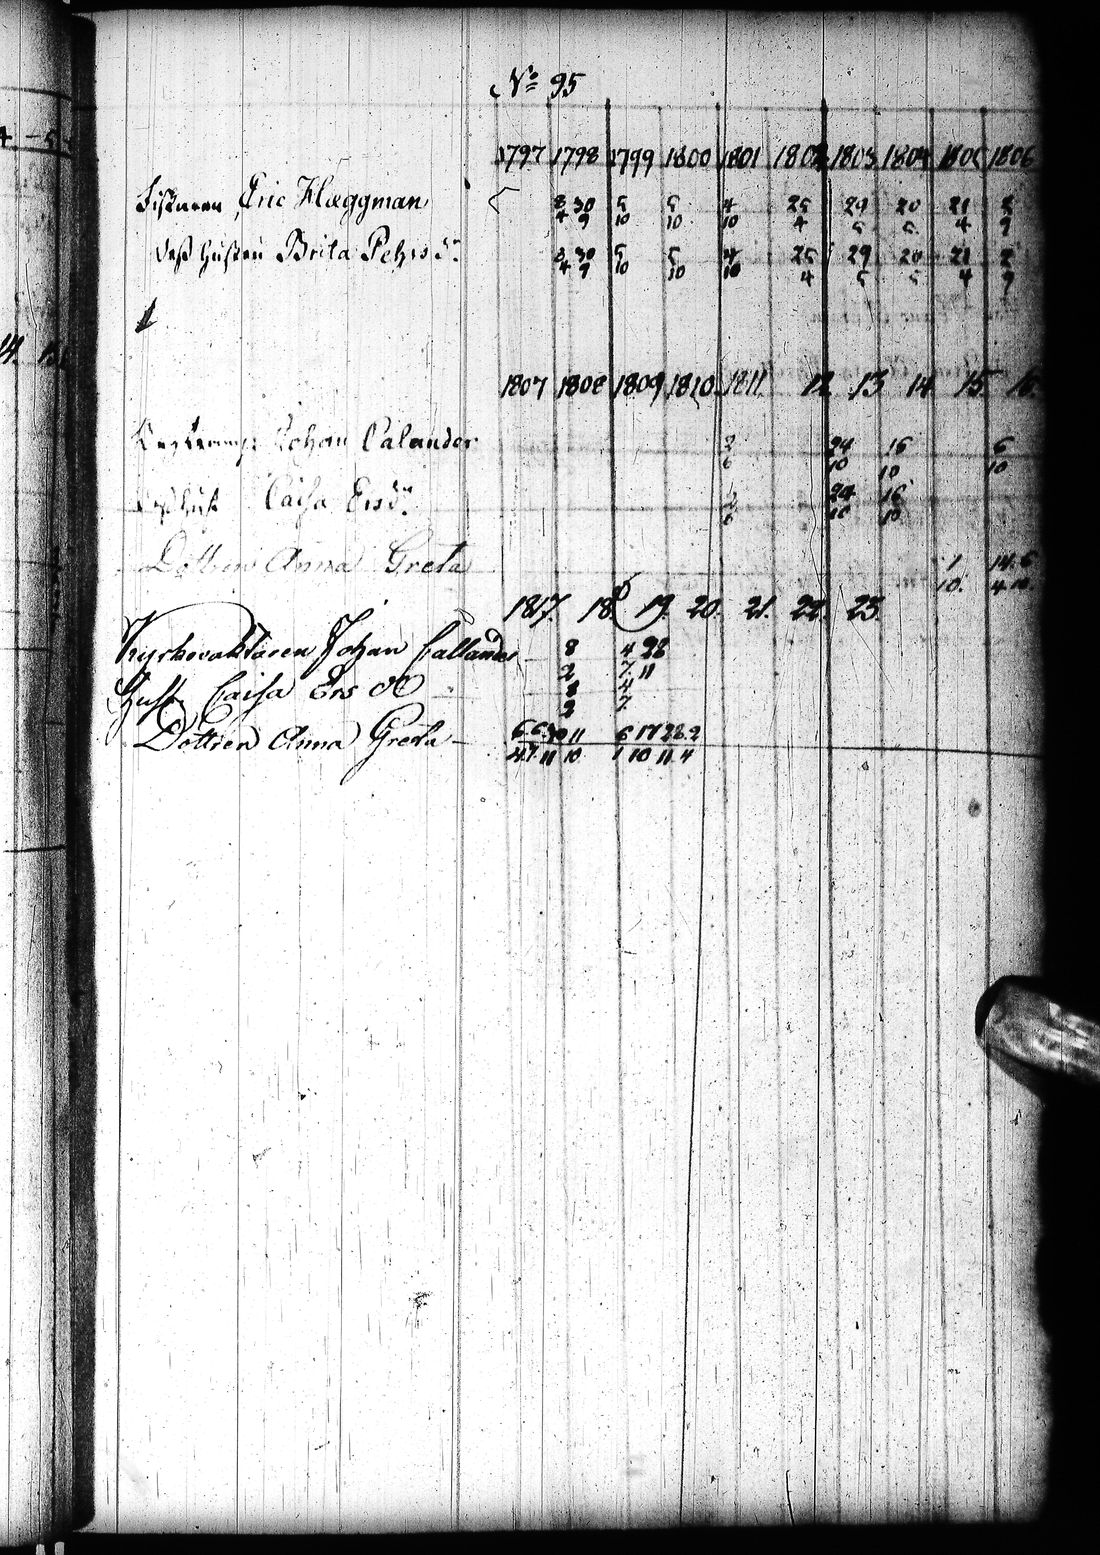 No 95
1797 1798 1799 1800 1801 1802 1803 1804 1805 1806
Fiskaren Eric Hæggman 8 30 5 5 4 25 29 20 21 2
4 9 10 10 10 4 5 5 4 9
Deß Hustru Brita Pehrsdr 8 30 5 5 4 25 29 20 21 2
4 9 10 10 10 4 5 5 4 9
1807 1808 1809 1810 1811 12 13 14 15 16
Johan Calander 2 24 16 6
6 10 10 10
Hust Caisa Ersdr 2 24 16
6 10 10
Dottren Anna Greta 1 14. 6
10. 4 10
1817. 18 19. 20. 21. 22. 23.
Kyrkovaktaren Johan Callander 8 4 28
2 7. 11
Hust Caisa Ers 8 4
2 7.
Dottren Anna Greta 6. 6. 30 11 6 17 28. 2
4. 7. 11 10 1 10 11. 4